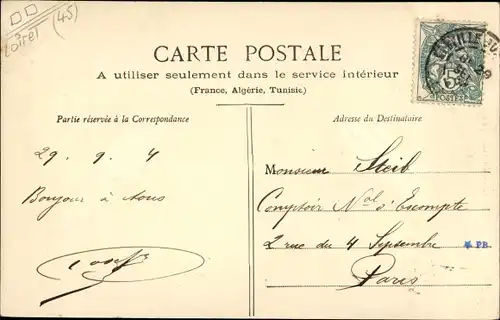 (45)
Loiret
CARTE POSTALE
A utiliser seulement dans le service intérieur
(France, Algérie, Tunisie)
Partie réservée à la Correspondance
29. 9. 4
Bonjour à tous
Adresse du Destinataire
Monsieur Steib
Comptoir Nal d'Escompte
2 rue du 4 Septembre
Paris
PB.
5
POSTES